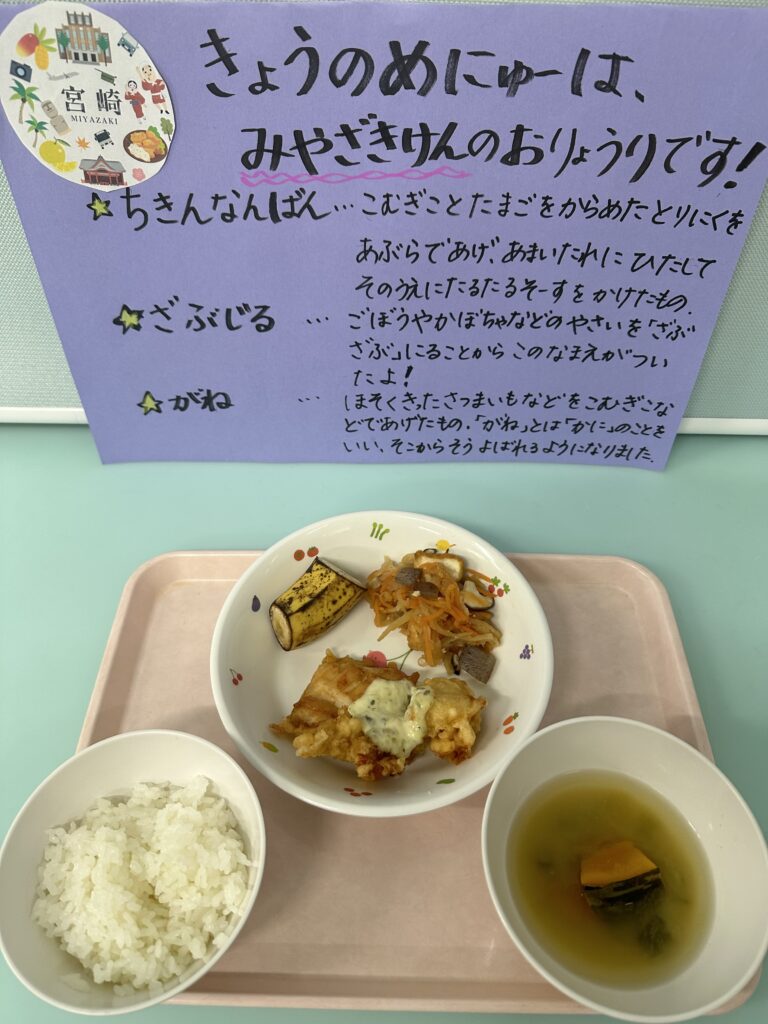 宮崎
MIYAZAKI
きょうのめにゅーは、
みやざきけんのおりょうりです!
☆ちきんなんばん…こむぎことたまごをからめたとりにくを
あぶらであげ、あまいたれにひたして
そのうえにたるたるそーすをかけたもの.
☆ざぶじる…ごぼうやかぼちゃなどのやさいを「ざぶ
ざぶ」にることからこのなまえがつい
たよ!
☆がね…ほそくきったさつまいもなどをこむぎこな
どであげたもの.「がね」とは「かに」のことを
いい、そこからそうよばれるようになりました.